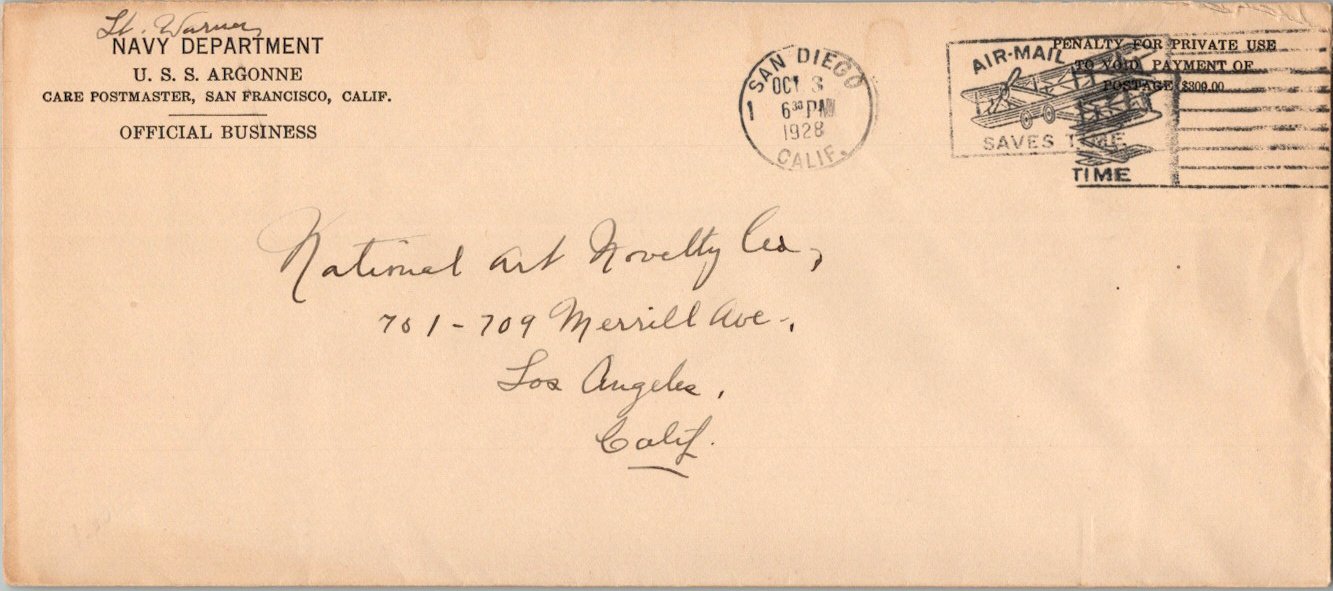 Lt. Warner
NAVY DEPARTMENT
U. S. S. ARGONNE
CARE POSTMASTER, SAN FRANCISCO, CALIF.
OFFICIAL BUSINESS
SAN DIEGO
OCT 3
6 30 PM
1928
CALIF.
1
AIR-MAIL
SAVES TIME
TIME
PENALTY FOR PRIVATE USE
TO VOID PAYMENT OF
POSTAGE $300.00
National Art Novelty Co,
701-709 Merrill Ave.,
Los Angeles,
Calif.